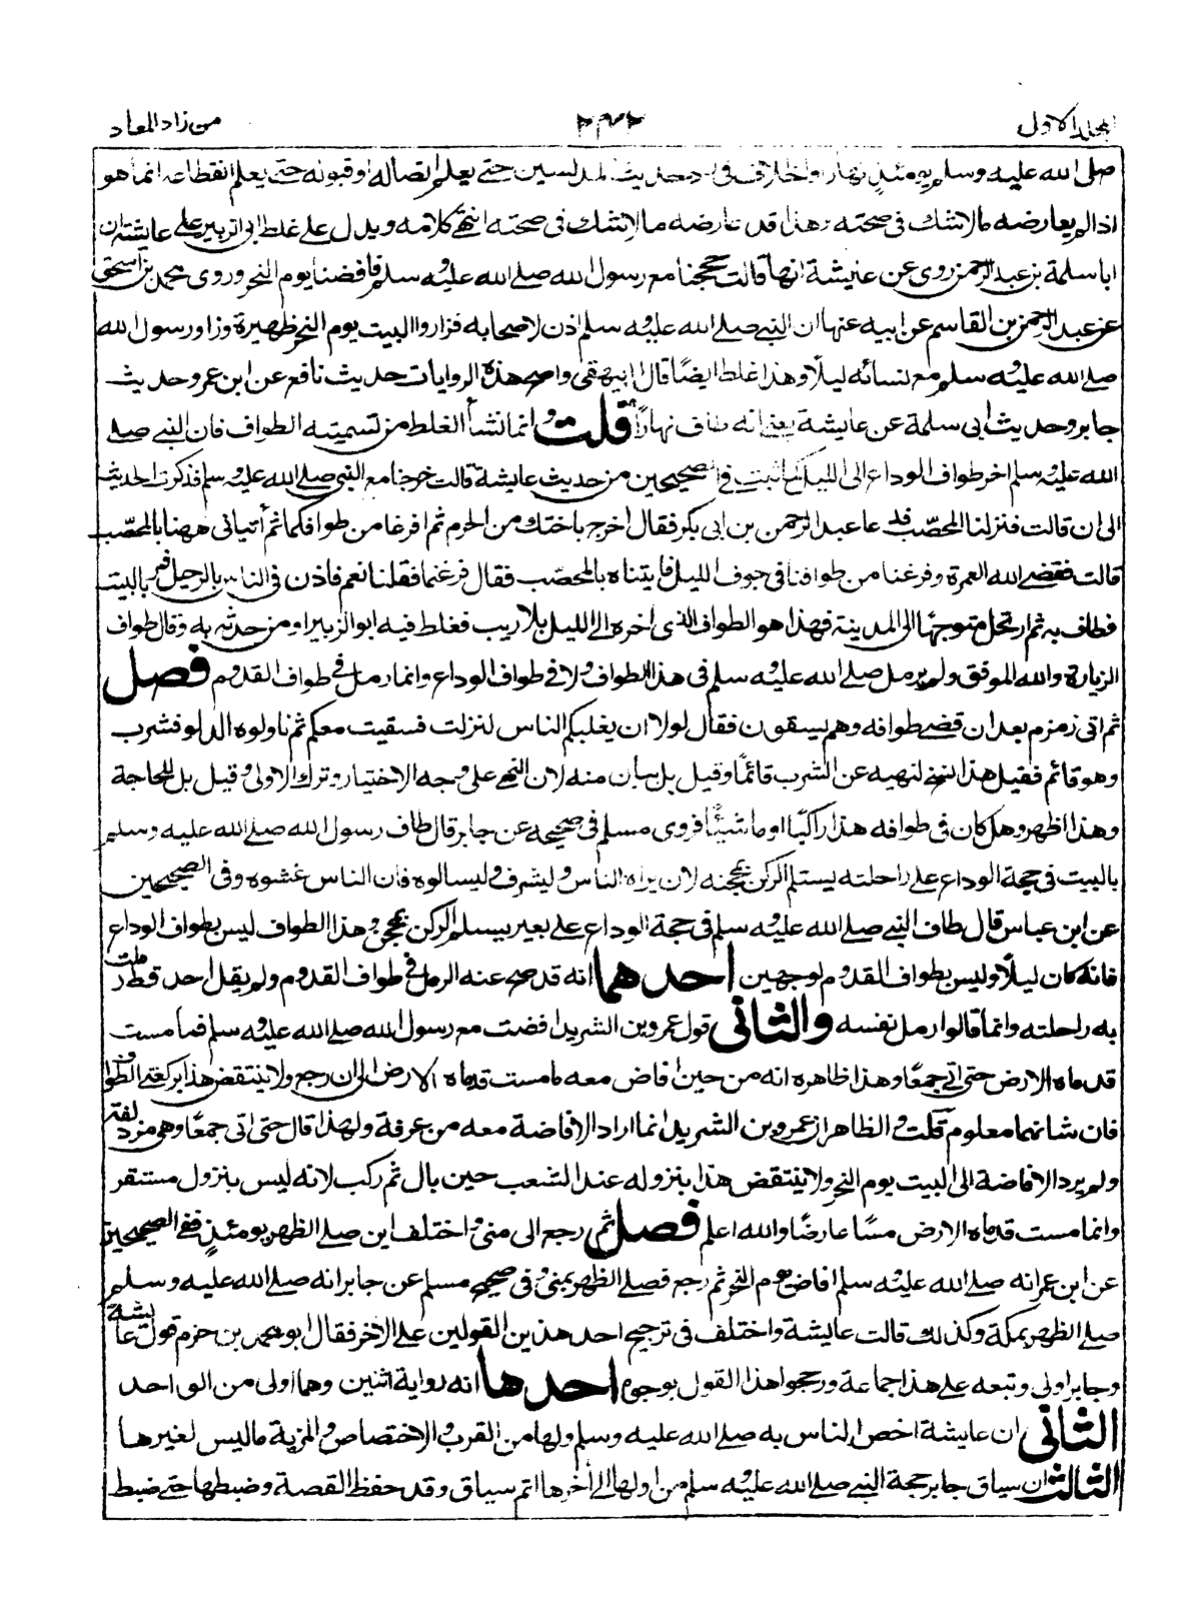 المجلد الاول
٢٣٢
من زاد المعاد
صلى الله عليه وسلم يومئذ نهارا والخلاف فى رد حديث المدلسين حتے يعلم اتصاله او قبوله حتے يعلم انقطاعه انما هو
اذا لم يعارضه ما لا شك فى صحته وهذا قد عارضه ما لا شك فى صحته انتهے كلامه ويدل على غلط ابى الزبير على عايشة ان
ابا سلمة بن عبد الرحمن روى عن عايشة انها قالت حججنا مع رسول الله صلے الله عليه وسلم فافضنا يوم النحر وروى محمد بن اسحق
عن عبد الرحمن بن القاسم عن ابيه عنها ان النبے صلے الله عليه وسلم اذن لاصحابه فزاروا البيت يوم النحر ظهيرة وزار رسول الله
صلے الله عليه وسلم مع نسائه ليلًا وهذا غلط ايضًا قال البيهقى واصح هذه الروايات حديث نافع عن ابن عمر وحديث
جابر وحديث ابى سلمة عن عايشة يعنے انه طاف نهارًا قلت وانما نشأ الغلط من تسميته الطواف فان النبے صلے
الله عليه وسلم اخر طواف الوداع الى الليل كما ثبت فى الصحيحين من حديث عايشة قالت خرجنا مع النبى صلے الله عليه وسلم فذكرت الحديث
الى ان قالت فنزلنا المحصّب فدعا عبد الرحمن بن ابى بكر فقال اخرج باختك من الحرم ثم افرغا من طوافكما ثم أتيانى ههنا بالمحصّب
قالت فقضے الله العمرة وفرغنا من طوافنا فى جوف الليل فاتيناه بالمحصّب فقال فرغتما فقلنا نعم فاذن فى الناس بالرحيل فمر بالبيت
فطاف به ثم ارتحل متوجها الى المدينة فهذا هو الطواف الذى اخره الے الليل بلا ريب فغلط فيه ابو الزبير او من حدثه به وقال طواف
الزيارة والله الموفق ولم يرمل صلے الله عليه وسلم فى هذا الطواف ولا فى طواف الوداع وانما رمل فى طواف القدوم فصل
ثم اتى زمزم بعد ان قضے طوافه وهم يسقون فقال لولا ان يغلبكم الناس لنزلت فسقيت معكم ثم ناولوه الدلو فشرب
وهو قائم فقيل هذا نسخ لنهيه عن الشرب قائمًا وقيل بل بيان منه لان النهے على وجه الاختيار وترك الاولى وقيل بل للحاجة
وهذا اظهر وهل كان فى طوافه هذا راكبًا او ماشيًا فروى مسلم فى صحيحه عن جابر قال طاف رسول الله صلے الله عليه وسلم
بالبيت فى حجة الوداع على راحلته يستلم الركن بمحجنه لان يراه الناس وليشرف وليسالوه فان الناس غشوه وفى الصحيحين
عن ابن عباس قال طاف النبے صلے الله عليه وسلم فى حجة الوداع علے بعير يستلم الركن بمحجن وهذا الطواف ليس بطواف الوداع
فانه كان ليلًا وليس بطواف القدوم لوجهين احدهما انه قد صح عنه الرمل فى طواف القدوم ولم يقل احد قط رملت
به راحلته وانما قالوا رمل نفسه والثانى قول عمرو بن الشريد افضت مع رسول الله صلے الله عليه وسلم فما مست
قدماه الارض حتى اتے جمعًا وهذا ظاهره انه من حين افاض معه ما مست قدماه الارض الى ان رجع ولا ينتقض هذا بركعتے الطواف
فان شانهما معلوم قلت والظاهر ان عمرو بن الشريد انما اراد الافاضة معه من عرفة ولهذا قال حتى اتى جمعًا وهى مزدلفة
ولم يرد الافاضة الى البيت يوم النحر ولا ينتقض هذا بنزوله عند الشعب حين بال ثم ركب لانه ليس بنزول مستقر
وانما مست قدماه الارض مسًا عارضًا والله اعلم فصل ثم رجع الى منى واختلف اين صلے الظهر يومئذٍ ففے الصحيحين
عن ابن عمر انه صلے الله عليه وسلم افاض يوم النحر ثم رجع فصلے الظهر بمنى وفى صحيح مسلم عن جابر انه صلے الله عليه وسلم
صلے الظهر بمكة وكذلك قالت عايشة واختلف فى ترجيح احد هذين القولين على الاخر فقال ابو محمد بن حزم قول عايشة
وجابر اولى وتبعه على هذا جماعة ورجحوا هذا القول بوجوه احدها انه رواية اثنين وهما اولى من الواحد
الثانى ان عايشة اخص الناس به صلے الله عليه وسلم ولها من القرب والاختصاص والمزية ما ليس لغيرها
الثالث ان سياق جابر حجة النبے صلے الله عليه وسلم من اولها الے أخرها اتم سياق وقد حفظ القصة وضبطها حتے ضبط